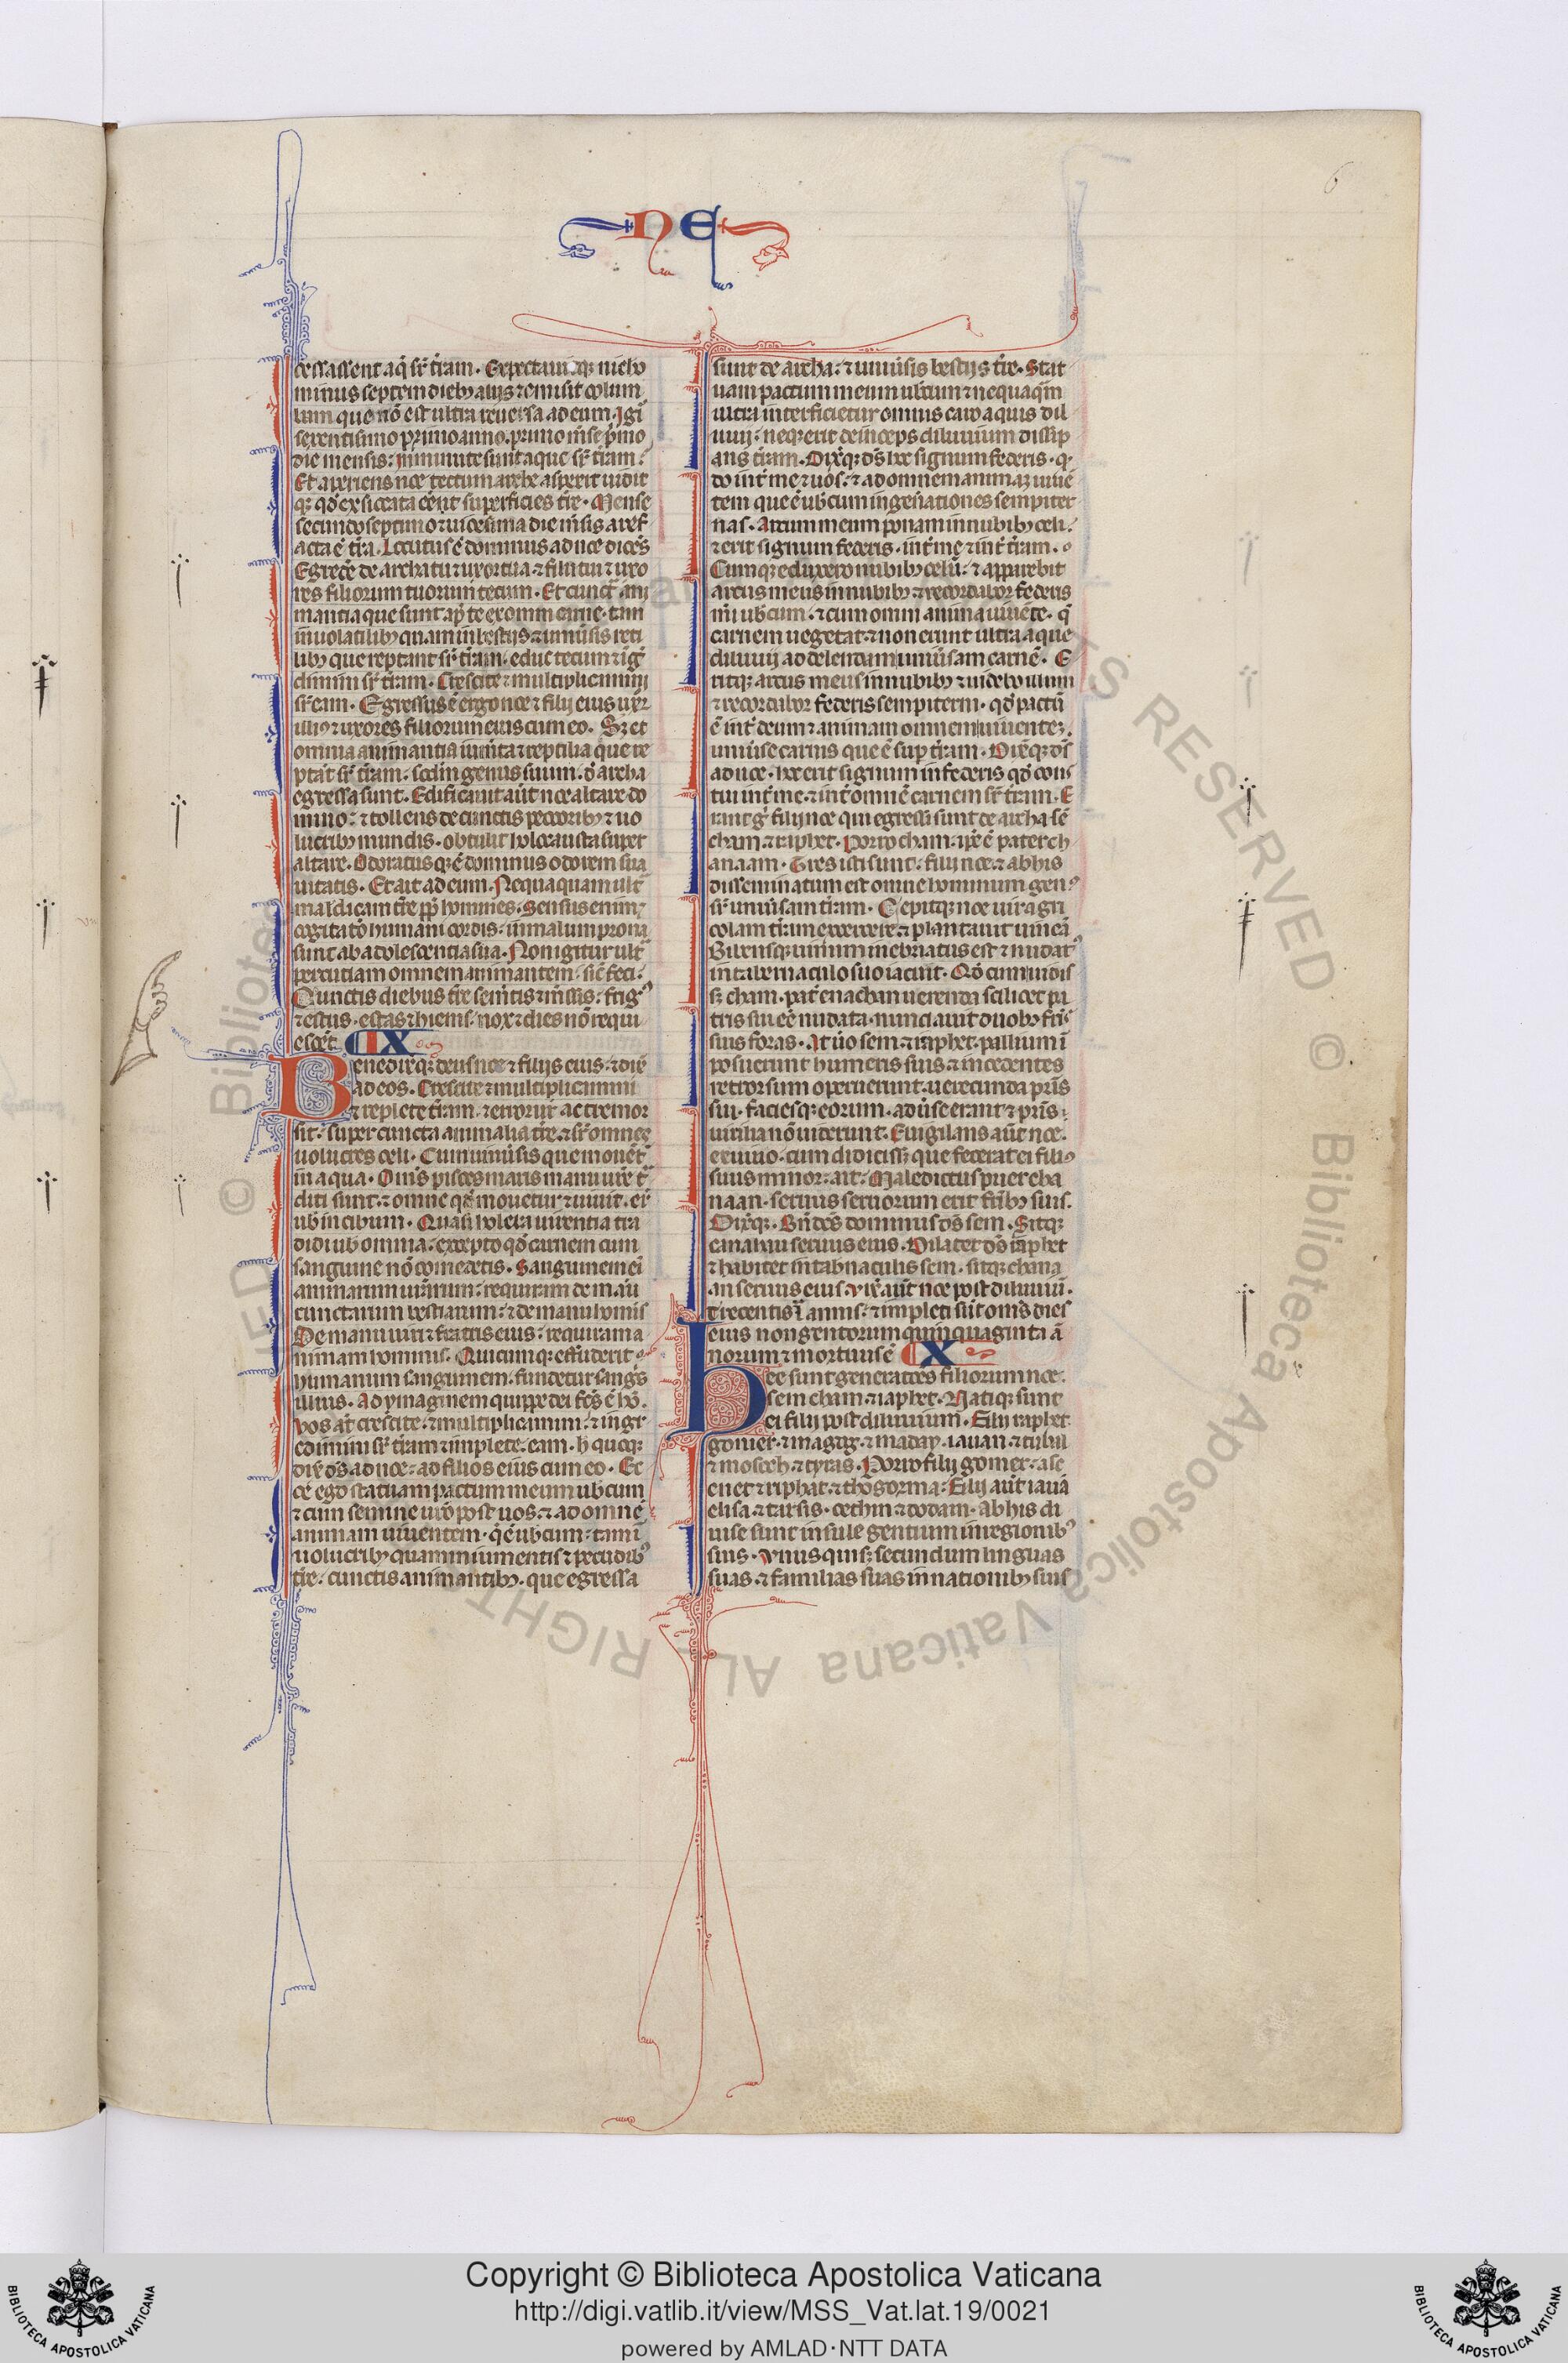 6
NE
cessassent aq̃ sr̃ t̃ram. Expectauitqꝫ nichͦ
minus septem diebꝫ alijs ⁊ emisit colum
bam que nõ est ultra reuersa ad eum. Igĩ
sexcentisimo primo anno. primo m̃se p̃mo
die mensis: inminute sunt aque sr̃ t̃ram.
Et aperiens noe tectum arche aspexit uidit
qꝫ qđ exsiccata eẽnt superficies t̃re. Mense
secundo septimo ⁊ uicesima die m̃sis aref
acta ẽ t̃ra. Locutus ẽ dominus ad noe dicẽs
Egredẽ de archa tu ⁊ uxor tua ⁊ filii tui ⁊ uxo
res filiorum tuorum tecum. Et cuncta ani
mantia que sunt ap̃ te ex omni carne. tam
in uolatilibꝫ quam in bestijs ⁊ uniũsis repti
libꝫ que reptant sr̃ t̃ram. educ tecum ⁊ ig̃
dimini sr̃ t̃ram. Crescite ⁊ multiplicimini
sr̃ eam. Egressus ẽ ergo noe ⁊ filij eius uxr̃
illiꝰ ⁊ uxores filiorum eius cum eo. Sꝫ et
omnia animantia iumẽta ⁊ reptilia que re
ptãt sr̃ t̃ram. scđm genus suum. đ archa
egressa sunt. Edificauit aũt noe altare do
mino: ⁊ tollens de cunctis pecoribꝫ ⁊ uo
lucribꝫ mundis. obtulit holocausta super
altare. Odoratus qꝫ ẽ dominus odorem sua
uitatis. Et ait ad eum. Nequaquam ult̃
maldicam t̃re pp̃ homines. Sensus enim ⁊
cogitatõ humani cordis. in malum prona
sunt ab adolescentia sua. Non igitur ult̃
percutiam omnem animantem. sic̃ feci.
Cunctis diebus t̃re sem̃tis ⁊ m̃ssis. frigꝰ
⁊ estus. estas ⁊ hiems. nox ⁊ dies nõ requi
escẽt. IX
Benedixqꝫ deus noe ⁊ filijs eius. ⁊ dix̃
ad eos. Crescite ⁊ multiplicimini
⁊ replete t̃ram. ⁊ terror ur̃ ac tremor
sit. super cuncta animalia t̃re. ⁊ sr̃ omnes
uolucres celi. Cum uniũsis que mouẽt̃
in aqua. Om̃s pisces maris manu ur̃e t̃
diti sunt. ⁊ omne qđ mouetur ⁊ uiuit. er̃
uob̃ in cibum. Quasi holera uirentia tra
didi uob̃ omnia. excepto qđ carnem cum
sanguine nõ comedetis. Sanguinem eĩ
animarum ur̃arum: requiram de manu
cunctarum bestiarum. ⁊ de manu homĩs
De manu uiri ⁊ fratris eius: requiram a
nimam hominis. Quicumqꝫ effuderit
humanum sanguinem. fundetur sangs̃
illius. Ad ymaginem quippe dei fc̃s ẽ hõ.
Vos aũt crescite. ⁊ multiplicimini. ⁊ ingr̃
edimini sr̃ t̃ram ⁊ implete eam. h̃ quoqꝫ
dix̃ ds̃ ad noe. ⁊ ad filios eius cum eo. Ec
ce ego statuam pactum meum uob̃cum
⁊ cum semine ur̃o post uos. ⁊ ad omnẽ
animam uiuentem. q̃ ẽ uob̃cum. tam ĩ
uolucribꝫ quam in iumentis ⁊ pecudibꝰ
t̃re. cunctis animantibꝫ. que egressa
sunt de archa. ⁊ uniũsis bestijs t̃re. Stat
uam pactum meum uob̃cum ⁊ nequaq̃m
ultra interficietur omnis caro aquis dil
uuij. neqꝫ erit deinceps diluuium dissip
ans t̃ram. Dix̃qꝫ ds̃ hoc signum federis. q̃
do int̃ me ⁊ uos. ⁊ ad omnem animaꝫ uiuẽ
tem que ẽ uob̃cum in geñationes sempiter
nas. Arcum meum ponam in nubibꝫ celi.
⁊ erit signum federis. int̃ me ⁊ int̃ t̃ram.
Cumqꝫ eduxero nubibꝫ celũ. ⁊ apparebit
arcus meus in nubibꝫ ⁊ recordabor federis
m̃i uob̃cum. ⁊ cum omni anima uiuẽte. q̃
carnem uegetat. ⁊ non erunt ultra aque
diluuij ad delendam uniũsam carnẽ. E
ritqꝫ arcus meus in nubibꝫ ⁊ uidebo illum
⁊ recordabor federis sempiterni. qđ pactũ
ẽ int̃ deum ⁊ animam omnem uiuenteꝫ.
uniũse carnis que ẽ sup t̃ram. Dix̃qꝫ ds̃
ad noe. hoc erit signum in federis qđ cons
titui int̃ me ⁊ int̃ omnẽ carnem sr̃ t̃ram. E
rant g̃ filij noe qui egressi sunt de archa sẽ
cham ⁊ iaphet. Porro cham. ip̃e ẽ pater ch
anaam. Tres isti sunt. filij noe. ⁊ ab his
disseminatum est omne hominum genꝰ
sr̃ uniũsam t̃ram. Cepitqꝫ noe uir agri
colam t̃ram exercere. ⁊ plantauit uineã
Bibensqꝫ uinum inebriatus est ⁊ nudatꝰ
in tabernaculo suo iacuit. Qđ cum uidis
sꝫ cham. pat̃ chanaan uerenda scilicet pa
tris sui eẽ nudata. nunciauit duobꝫ frĩs
suis foras. At ũo sem ⁊ iaphet. pallium ĩ
posuerunt humeris suis. ⁊ incedentes
retrorsum operuerunt. uerecunda pr̃is
sui. faciesqꝫ eorum. adũse erant ⁊ pr̃is.
uirilia nõ uiderunt. Euigilans aũt noe.
ex uino. cum didicissꝫ que fecerat ei filiꝰ
suus minor. ait. Maledictus puer cha
naan. seruus seruorum erit fratribꝫ suis.
Dix̃qꝫ. Bñdc̃s dominus ds̃ sem. Sitqꝫ
canaan seruus eius. Dilatet ds̃ iaphet
⁊ habitet in tab̃naculis sem. sitqꝫ chana
an seruus eius. vix̃ aũt noe post diluuiũ.
trecentis l̃ annis. ⁊ impleti sũt om̃s dies
eius nongentorum quinquaginta ã
norum ⁊ mortuus ẽ X
Hee sunt generatões filiorum noe.
sem cham ⁊ iaphet. Natiqꝫ sunt
ei filij post diluuium. Filij iaphet
gomer. ⁊ magog. ⁊ maday. iauan. ⁊ tubal
⁊ mosoch. ⁊ tyras. Porro filij gomer. asc
enet ⁊ riphat. ⁊ thogorma. Filij aũt iauã
elisa ⁊ tarsis. cethin ⁊ dodam. Ab his di
uise sunt insule gentium in regionibꝰ
suis. vnusquisqꝫ secundum linguas
suas. ⁊ familias suas in nationibꝫ suis
Copyright © Biblioteca Apostolica Vaticana
http://digi.vatlib.it/view/MSS_Vat.lat.19/0021
powered by AMLAD·NTT DATA
BIBLIOTECA APOSTOLICA VATICANA
BIBLIOTECA APOSTOLICA VATICANA